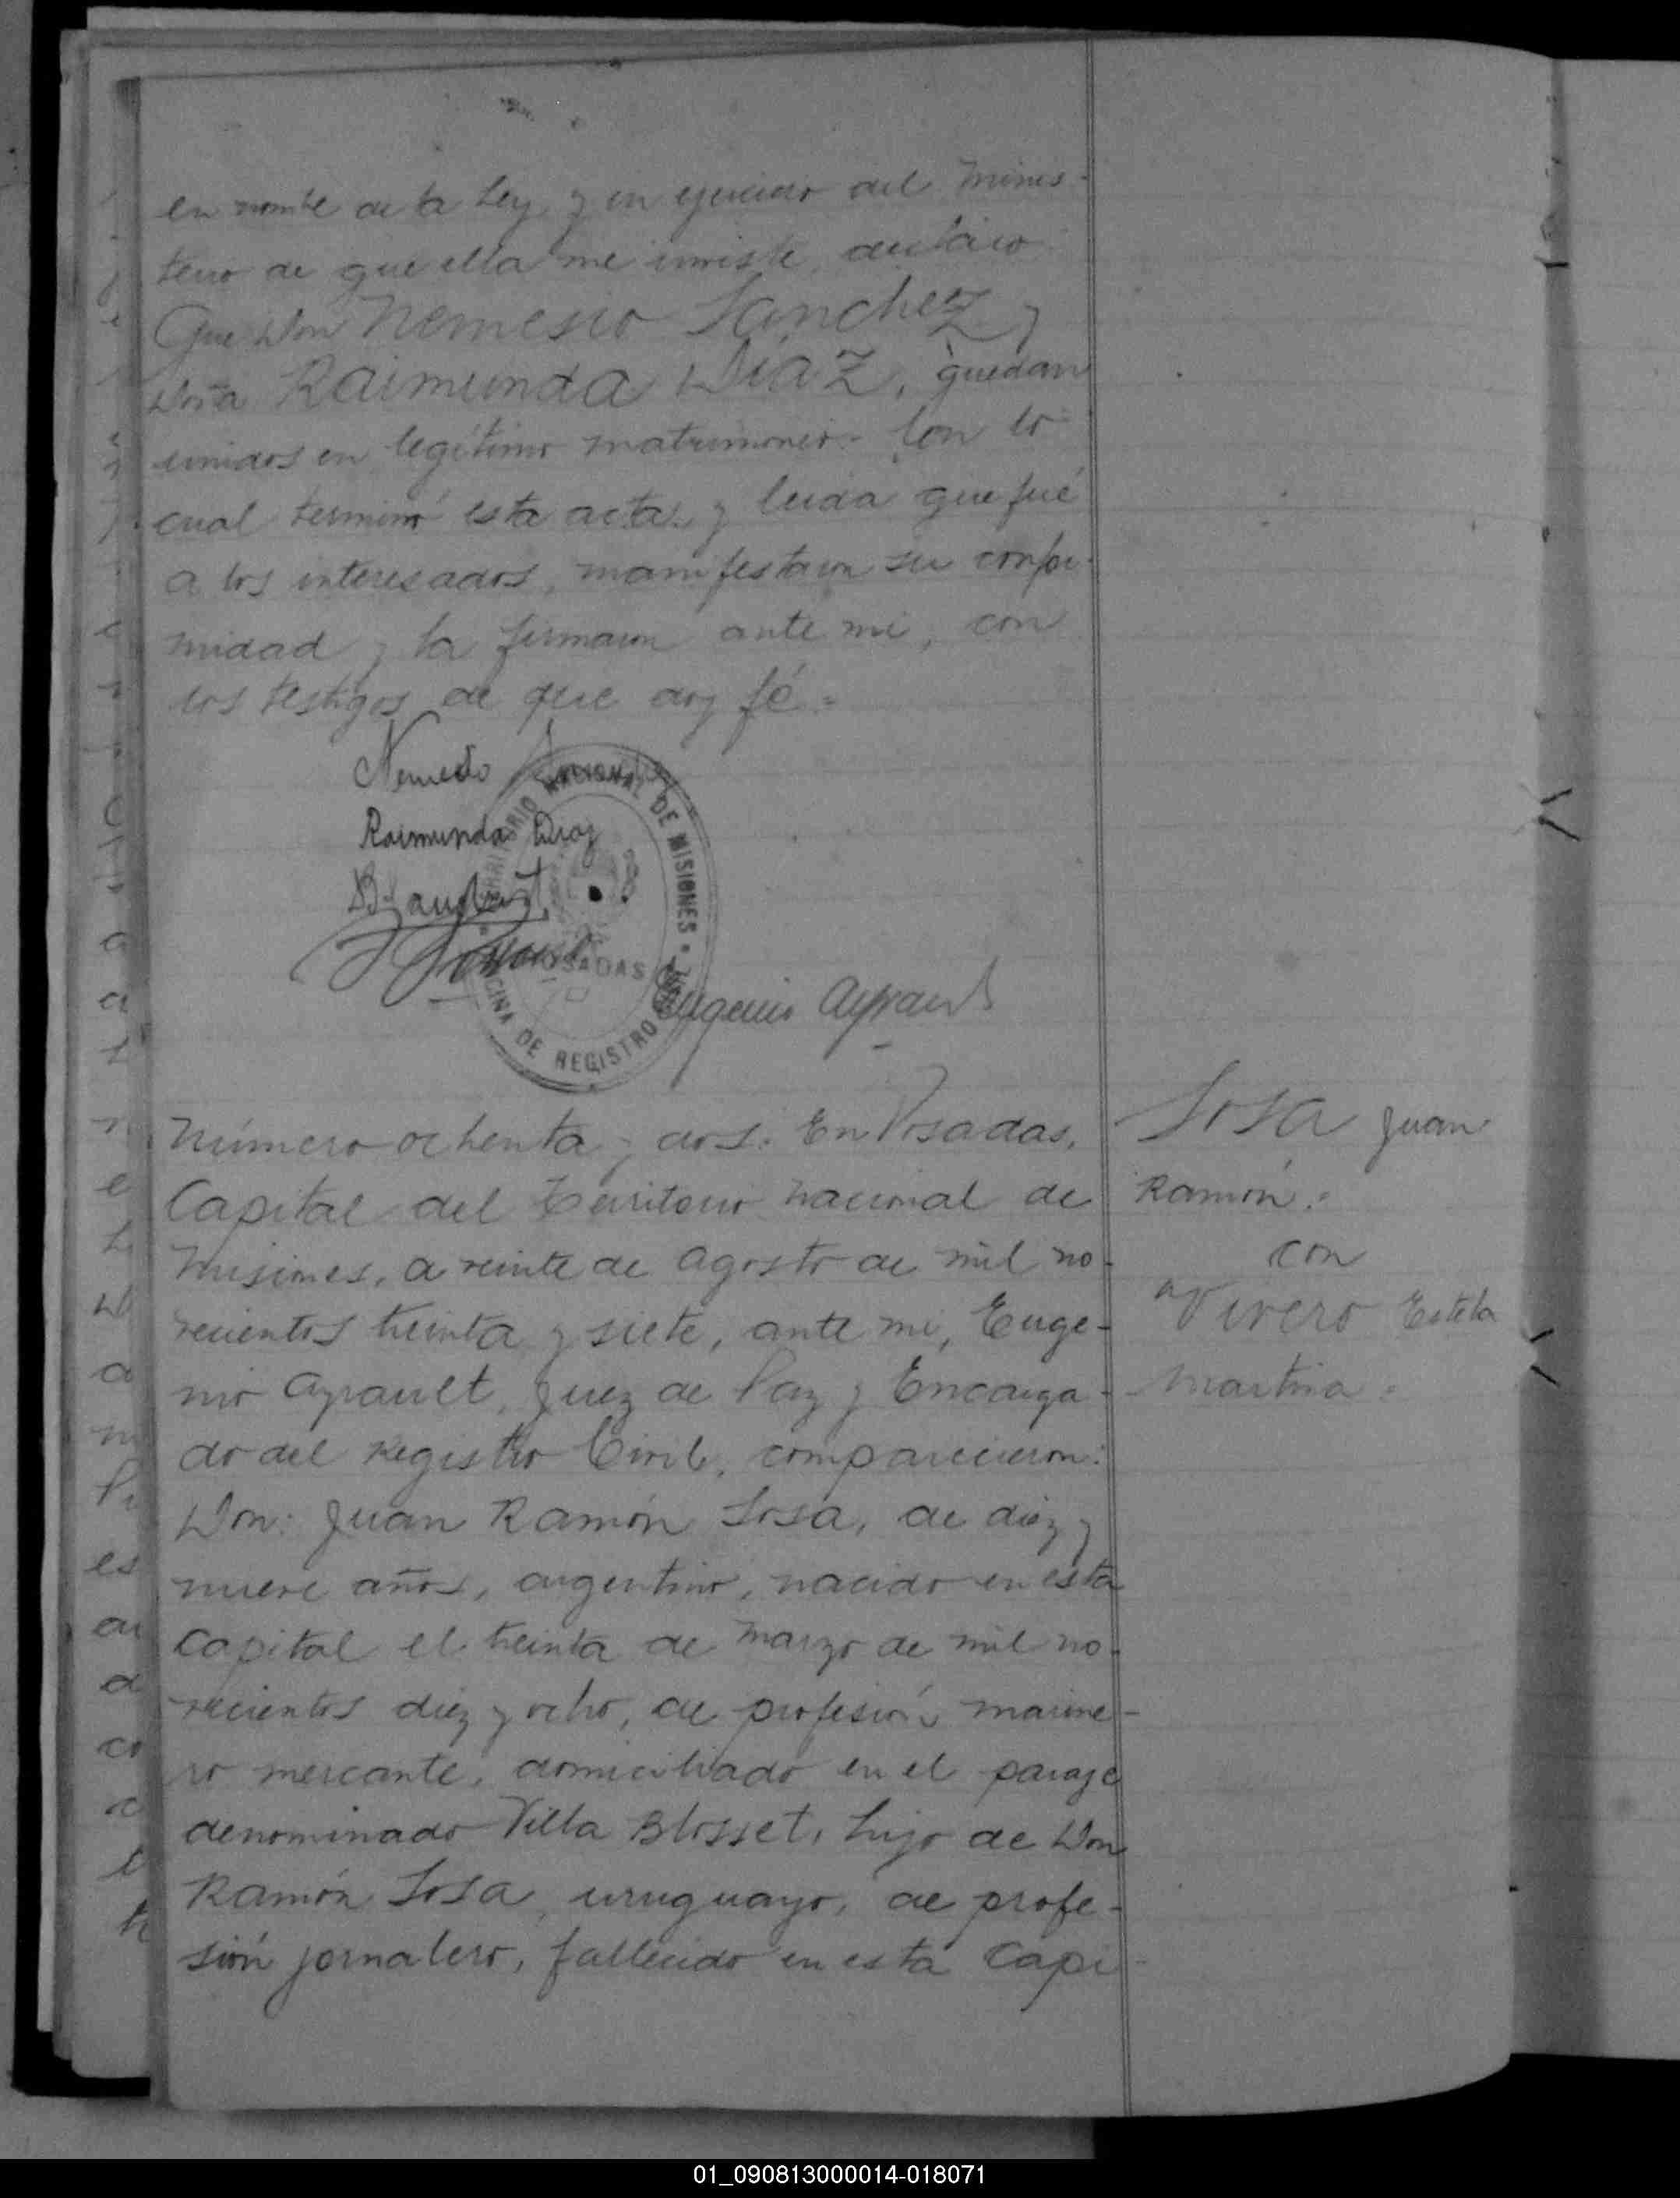 en nombre de la Ley y en ejercicio del Minis-
terio de que ella me inviste, declaro:
Que Don Nemesio Sanchez y
Doña Raimunda Díaz, quedan
unidos en legítimo matrimonio. Con lo
cual terminó esta acta y leida que fué
a los interesados, manifestaron su confor-
midad y la firmaron ante mi, con
los testigos de que doy fé.=
Nemesio
Raimunda Diaz
TERRITORIO NACIONAL DE MISIONES
POSADAS
OFICINA DE REGISTRO
Eugenio Ayrault
Número ochenta y dos: En Posadas,
Capital del Territorio Nacional de
Misiones, a veinte de Agosto de mil no-
vecientos treinta y siete, ante mi, Euge-
nio Ayrault, Juez de Paz y Encarga-
do del Registro Civil, comparecieron:
Don: Juan Ramón Sosa, de diez y
nueve años, argentino, nacido en esta
Capital el treinta de Marzo de mil no-
vecientos diez y ocho, de profesión marine-
ro mercante, domiciliado en el paraje
denominado Villa Blosset, hijo de Don
Ramón Sosa, uruguayo, de profe-
sión jornalero, fallecido en esta Capi-
Sosa Juan
Ramón.=
con
Vivero Estela
Martina =
01_090813000014-018071